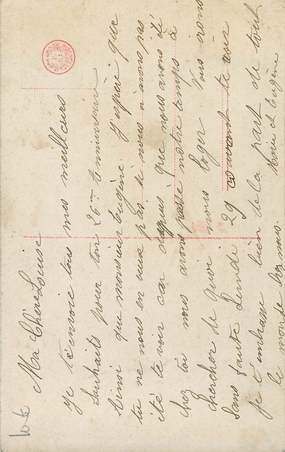 Ma Chère Louise
Je t'envoie tous mes meilleurs
souhaits pour ton 26me anniversaire
Ainsi que monsieur Eugène. J'espère que
tu ne nous en veux pas si nous n'avons pas
été te voir car depuis que nous avons été
chez toi nous avons passé notre temps à
chercher de quoi nous loger Nous irons
sans faute Lundi 29 courant te voir
Je t'embrasse bien de la part de tout
le monde
Marie et Eugène